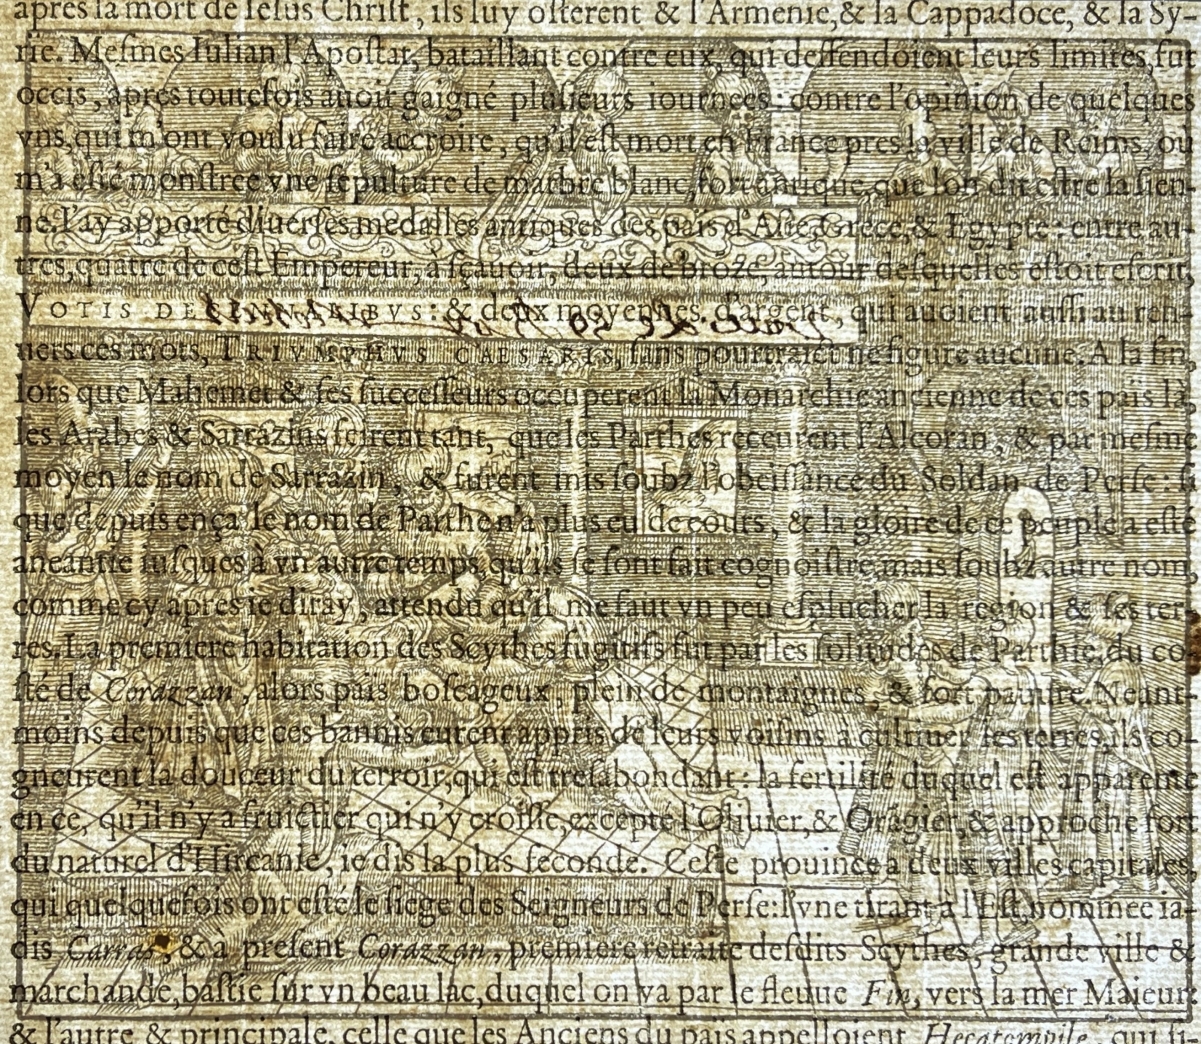 apres la mort de Iesus Chriſt, ils luy oſterent & l'Armenie, & la Cappadoce, & la Sy-
rie. Meſmes Iulian l'Apoſtat, bataillant contre eux, qui deffendoient leurs limites, fut
occis, apres toutefois auoir gaigné pluſieurs iournees: contre l'opinion de quelques
vns, qui m'ont voulu faire accroire, qu'il eſt mort en France pres la ville de Reims, où
m'a eſté monſtree vne ſepulture de marbre blanc, fort antique, que lon dit eſtre la ſien-
ne. I'ay apporté diuerſes medalles antiques des païs d'Aſie, Grece, & Egypte: entre au-
tres, quatre de ceſt Empereur, à ſçauoir, deux de brõze, autour deſquelles eſtoit eſcrit,
VOTIS DECENNALIBVS: & deux moyennes d'argent, qui auoient auſſi au ren-
uers ces mots, TRIVMPHVS CAESARIS, ſans pourtraict ne figure aucune. A la fin,
lors que Mahemet & ſes ſucceſſeurs occuperent la Monarchie ancienne de ces païs là,
les Arabes & Sarrazins feirent tant, que les Parthes receurent l'Alcoran, & par meſme
moyen le nom de Sarrazin, & furent mis ſoubz l'obeiſſance du Soldan de Perſe: ſi
que depuis ença le nom de Parthe n'a plus eu de cours, & la gloire de ce peuple a eſté
aneantie iuſques à vn autre temps, qu'ils ſe ſont fait cognoiſtre, mais ſoubz autre nom,
comme cy apres ie diray, attendu qu'il me faut vn peu eſplucher la region & ſes ter-
res. La premiere habitation des Scythes fugitifs fut par les ſolitudes de Parthie, du co-
ſté de Corazzan, alors païs boſcageux, plein de montaignes, & fort pauure. Neant-
moins depuis que ces bannis eurent appris de leurs voiſins à cultiuer les terres, ils co-
gneurent la douceur du terroir, qui eſt treſabondant: la fertilité duquel eſt apparente
en ce, qu'il n'y a fruictier qui n'y croiſſe, excepté l'Oliuier, & Orãgier, & approche fort
du naturel d'Hircanie, ie dis la plus feconde. Ceſte prouince a deux villes capitales,
qui quelquefois ont eſté le ſiege des Seigneurs de Perſe: l'vne tirant à l'Eſt, nommee ia-
dis Carras, & à preſent Corazzan, premiere retraite deſdits Scythes, grande ville &
marchande, baſtie ſur vn beau lac, duquel on va par le fleuue Fin, vers la mer Maieur:
& l'autre & principale, celle que les Anciens du païs appelloient Hecatompile, qui ſi-